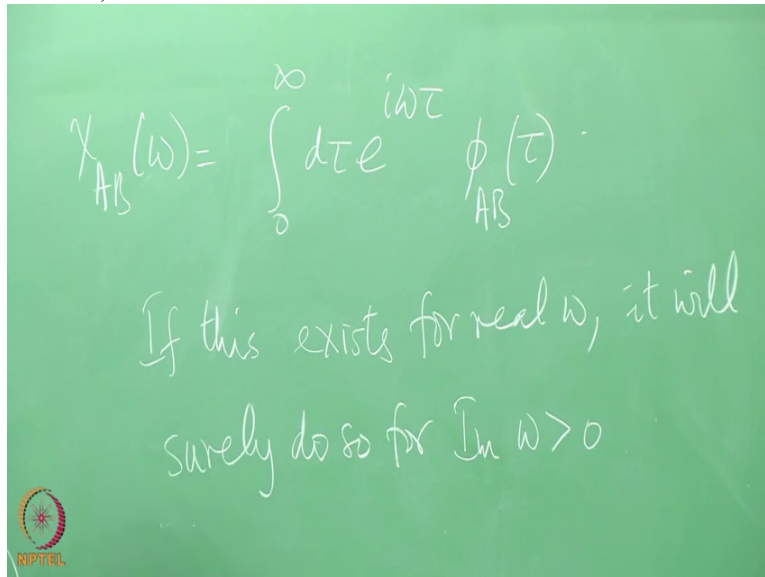 χ_AB(ω) = ∫_0^∞ dτ e^{iωτ} ϕ_AB(τ).
If this exists for real ω, it will
surely do so for Im ω > 0
NPTEL